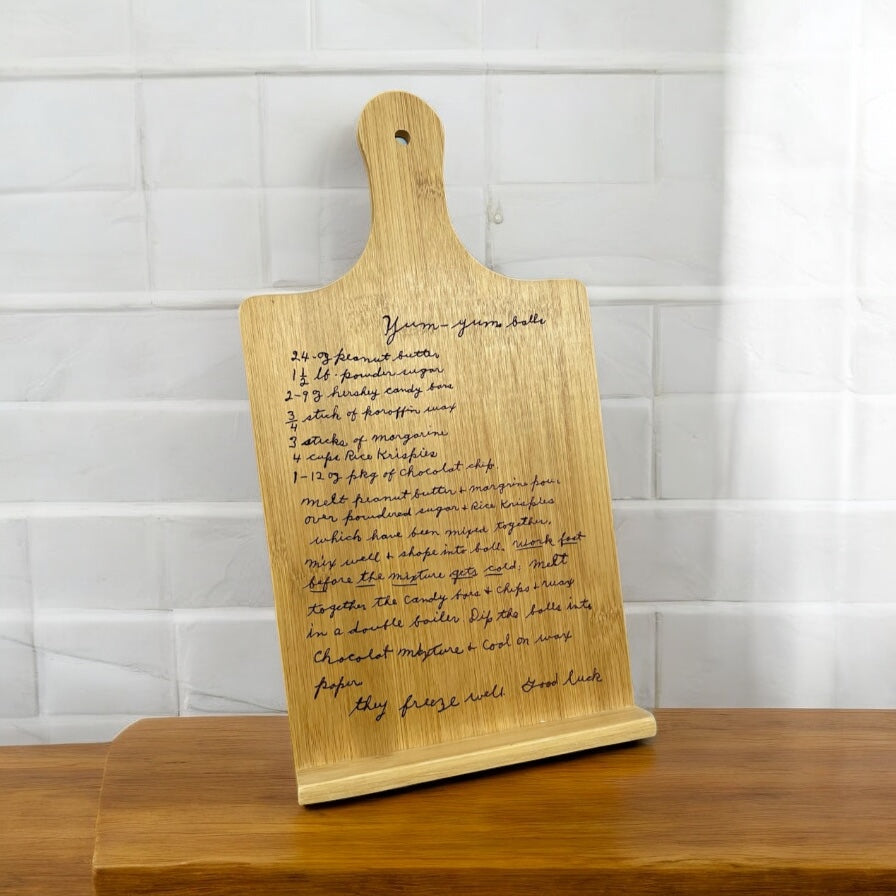 Yum-yum balls
24-oz peanut butter
1 1/2 lb. powder sugar
2-9 oz hershey candy bars
3/4 stick of paroffin wax
3 sticks of margarine
4 cups Rice Krispies
1-12 oz pkg of Chocolat chip.
Melt peanut butter + margrine pour
over powdered sugar + Rice Krispies
which have been mixed together.
Mix well + shape into ball. work fast
before the mixture gets cold. Melt
together the candy bars + chips + wax
in a double boiler Dip the balls into
Chocolat mixture + Cool on wax
paper
they freeze well Good luck